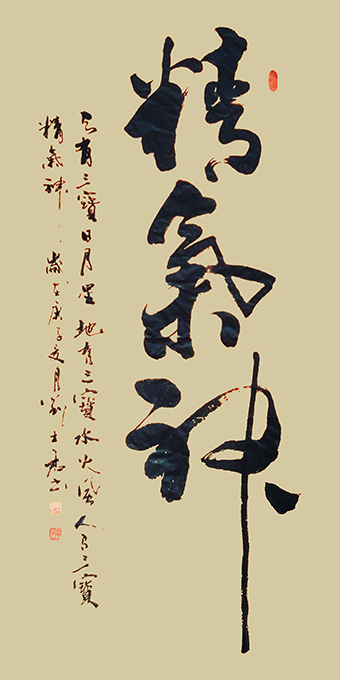 精氣神
天有三寶日月星地有三寶水火風人有三寶
精氣神歲在庚子夏月劉士君书